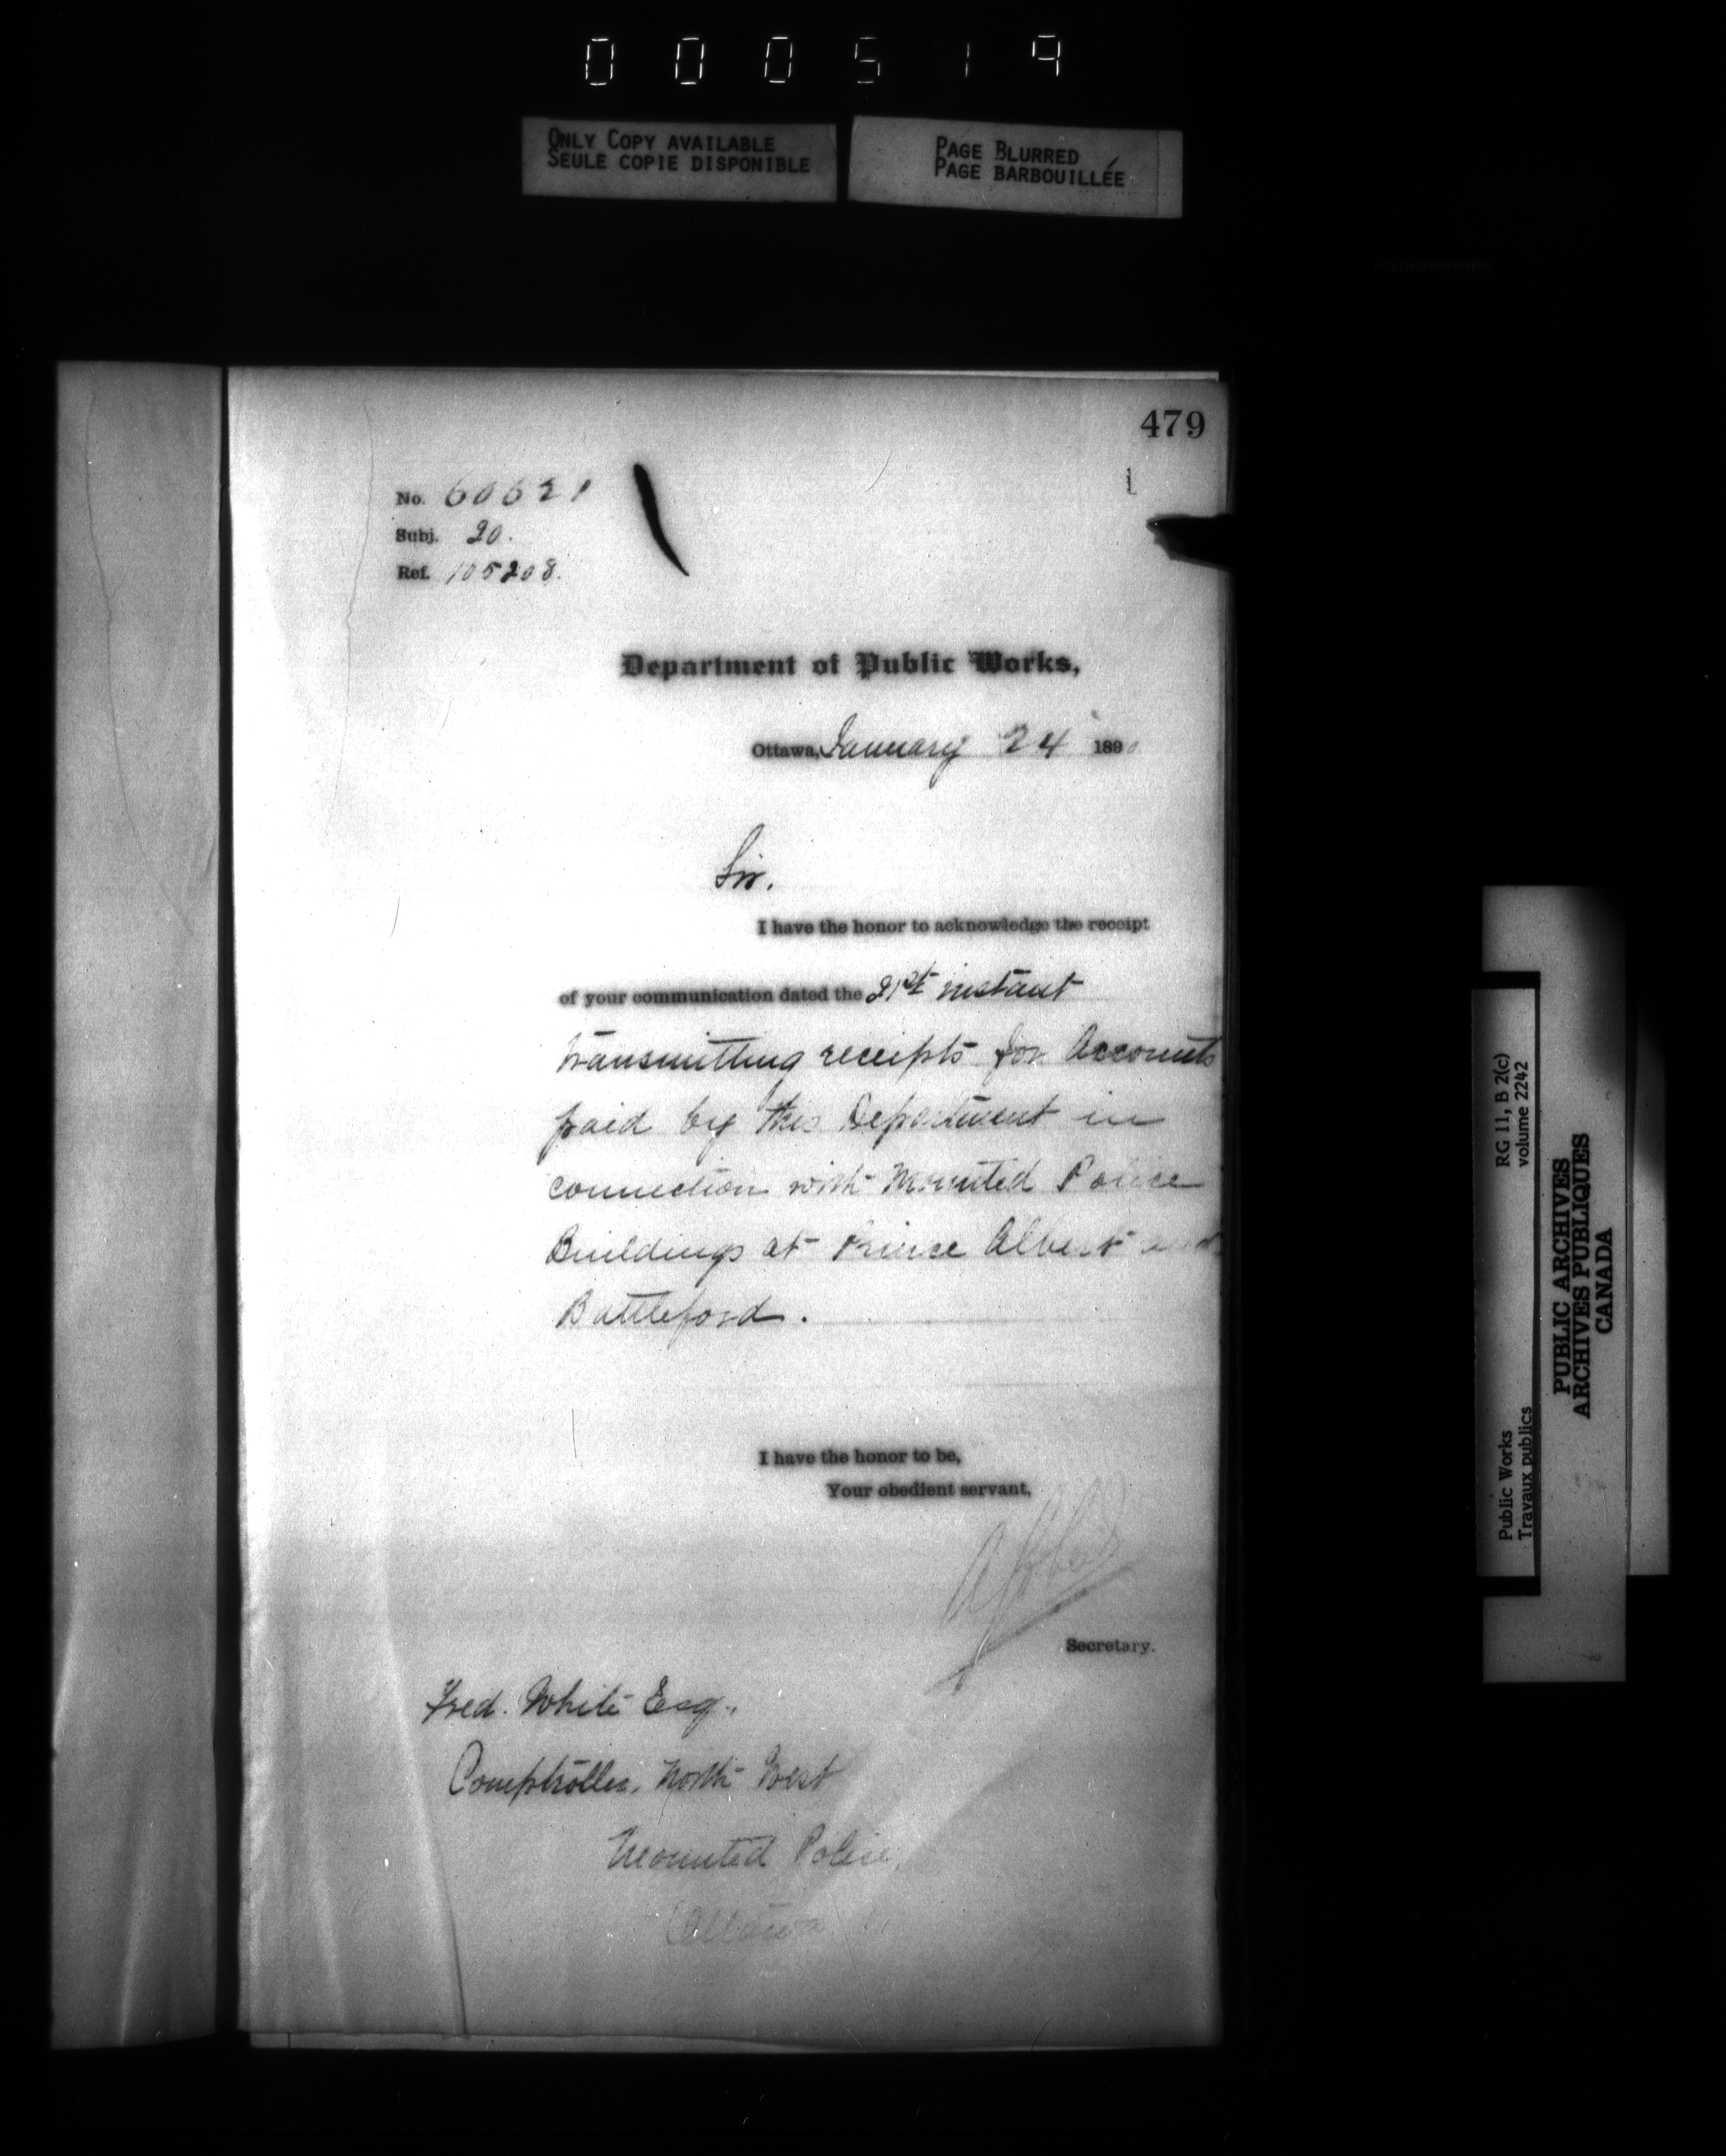 000519
ONLY COPY AVAILABLE
SEULE COPIE DISPONIBLE
PAGE BLURRED
PAGE BARBOUILLÉE
479
No. 60621
Subj. 20.
Ref. 105208.
Department of Public Works,
Ottawa, January 24 1890
Sir.
I have the honor to acknowledge the receipt
of your communication dated the 21st instant
transmitting receipts for Accounts
paid by this Department in
connection with Mounted Police
Buildings at Prince Albert and
Battleford.
I have the honor to be,
Your obedient servant,
Secretary.
Fred. White Esq.,
Comptroller, North West
Mounted Police,
Ottawa
Public Works
Travaux publics
RG 11, B 2(c)
volume 2242
PUBLIC ARCHIVES
ARCHIVES PUBLIQUES
CANADA